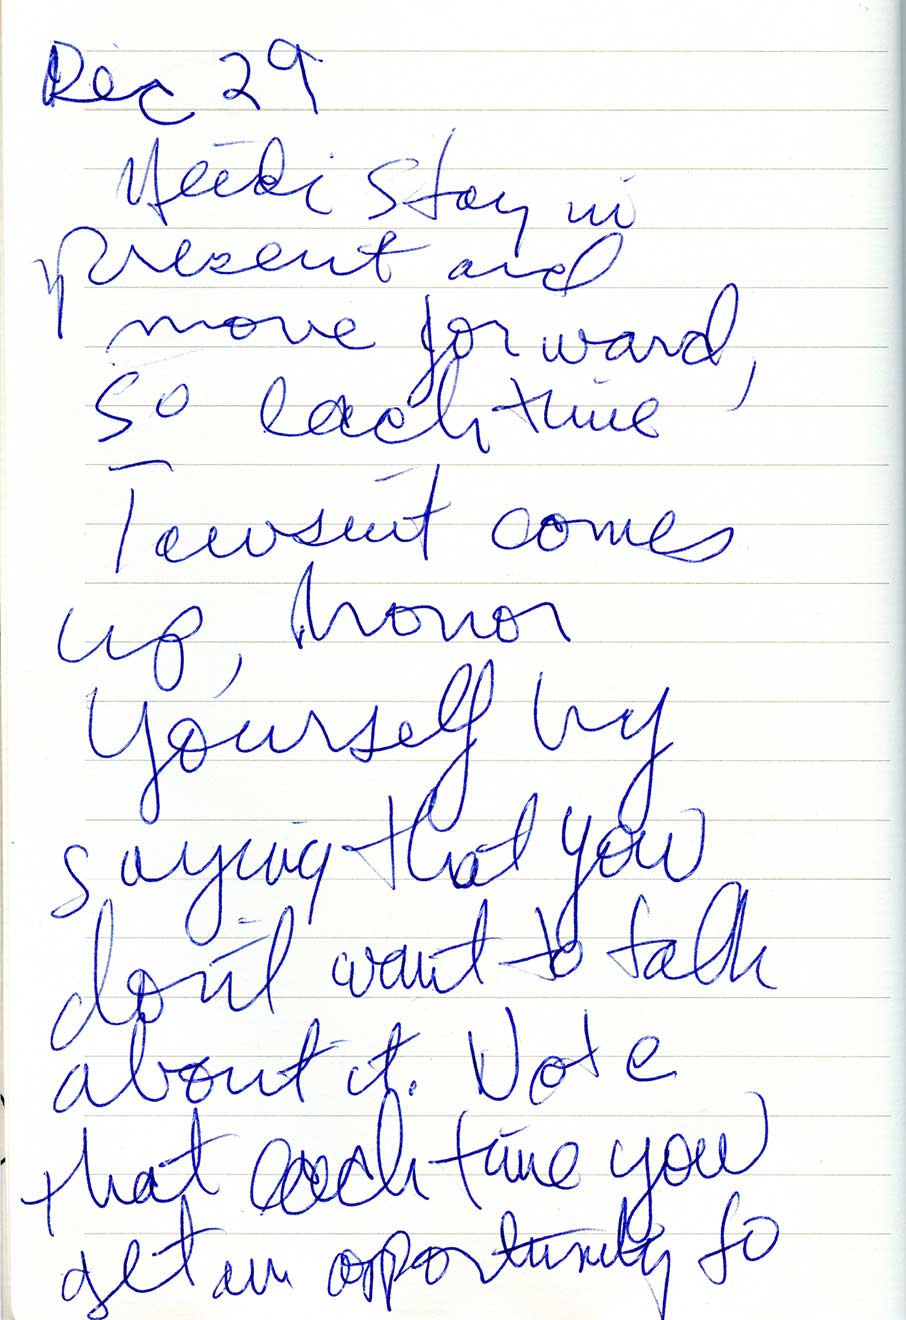 Dec 29
Heidi stay in
present and
move forward,
so each time
Lawsuit comes
up, honor
yourself by
saying that you
don't want to talk
about it. Note
that each time you
get an opportunity to